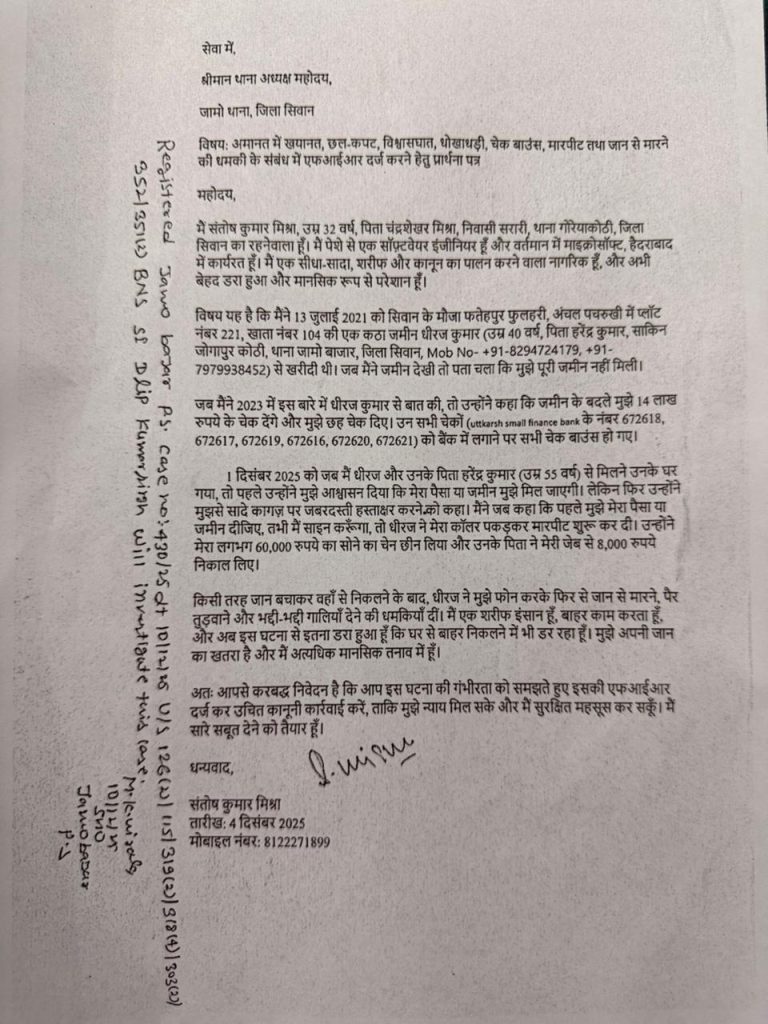 सेवा में,
श्रीमान थाना अध्यक्ष महोदय,
जामो थाना, जिला सिवान
विषय: अमानत में खयानत, छल-कपट, विश्वासघात, धोखाधड़ी, चेक बाउंस, मारपीट तथा जान से मारने
की धमकी के संबंध में एफआईआर दर्ज करने हेतु प्रार्थना पत्र
महोदय,
मैं संतोष कुमार मिश्रा, उम्र 32 वर्ष, पिता चंद्रशेखर मिश्रा, निवासी सरारी, थाना गोरियाकोठी, जिला
सिवान का रहनेवाला हूँ। मैं पेशे से एक सॉफ़्टवेयर इंजीनियर हूँ और वर्तमान में माइक्रोसॉफ्ट, हैदराबाद
में कार्यरत हूँ। मैं एक सीधा-सादा, शरीफ और कानून का पालन करने वाला नागरिक हूँ, और अभी
बेहद डरा हुआ और मानसिक रूप से परेशान हूँ।
विषय यह है कि मैंने 13 जुलाई 2021 को सिवान के मौजा फतेहपुर फुलहरी, अंचल पचरुखी में प्लॉट
नंबर 221, खाता नंबर 104 की एक कठा जमीन धीरज कुमार (उम्र 40 वर्ष, पिता हरेंद्र कुमार, साकिन
जोगापुर कोठी, थाना जामो बाजार, जिला सिवान, Mob No- +91-8294724179, +91-
7979938452) से खरीदी थी। जब मैंने जमीन देखी तो पता चला कि मुझे पूरी जमीन नहीं मिली।
जब मैंने 2023 में इस बारे में धीरज कुमार से बात की, तो उन्होंने कहा कि जमीन के बदले मुझे 14 लाख
रुपये के चेक देंगे और मुझे छह चेक दिए। उन सभी चेकों (uttkarsh small finance bank के नंबर 672618,
672617, 672619, 672616, 672620, 672621) को बैंक में लगाने पर सभी चेक बाउंस हो गए।
1 दिसंबर 2025 को जब मैं धीरज और उनके पिता हरेंद्र कुमार (उम्र 55 वर्ष) से मिलने उनके घर
गया, तो पहले उन्होंने मुझे आश्वासन दिया कि मेरा पैसा या जमीन मुझे मिल जाएगी। लेकिन फिर उन्होंने
मुझसे सादे कागज़ पर जबरदस्ती हस्ताक्षर करने को कहा। मैंने जब कहा कि पहले मुझे मेरा पैसा या
जमीन दीजिए, तभी मैं साइन करूँगा, तो धीरज ने मेरा कॉलर पकड़कर मारपीट शुरू कर दी। उन्होंने
मेरा लगभग 60,000 रुपये का सोने का चेन छीन लिया और उनके पिता ने मेरी जेब से 8,000 रुपये
निकाल लिए।
किसी तरह जान बचाकर वहाँ से निकलने के बाद, धीरज ने मुझे फोन करके फिर से जान से मारने, पैर
तुड़वाने और भद्दी-भद्दी गालियाँ देने की धमकियाँ दीं। मैं एक शरीफ इंसान हूँ, बाहर काम करता हूँ,
और अब इस घटना से इतना डरा हुआ हूँ कि घर से बाहर निकलने में भी डर रहा हूँ। मुझे अपनी जान
का खतरा है और मैं अत्यधिक मानसिक तनाव में हूँ।
अतः आपसे करबद्ध निवेदन है कि आप इस घटना की गंभीरता को समझते हुए इसकी एफआईआर
दर्ज कर उचित कानूनी कार्रवाई करें, ताकि मुझे न्याय मिल सके और मैं सुरक्षित महसूस कर सकूँ। मैं
सारे सबूत देने को तैयार हूँ।
धन्यवाद,
संतोष कुमार मिश्रा
तारीख: 4 दिसंबर 2025
मोबाइल नंबर: 8122271899
Registered Jamo bazar P.S. Case no: 430/25 dt 10/12/25 U/S 126(2)/115/319(2)/318(4)/303(2)/
352/351(2) BNS SI Dlip Kumar Singh will investigate this case.
10/12/25
SHO
Jamo bazar
P.S